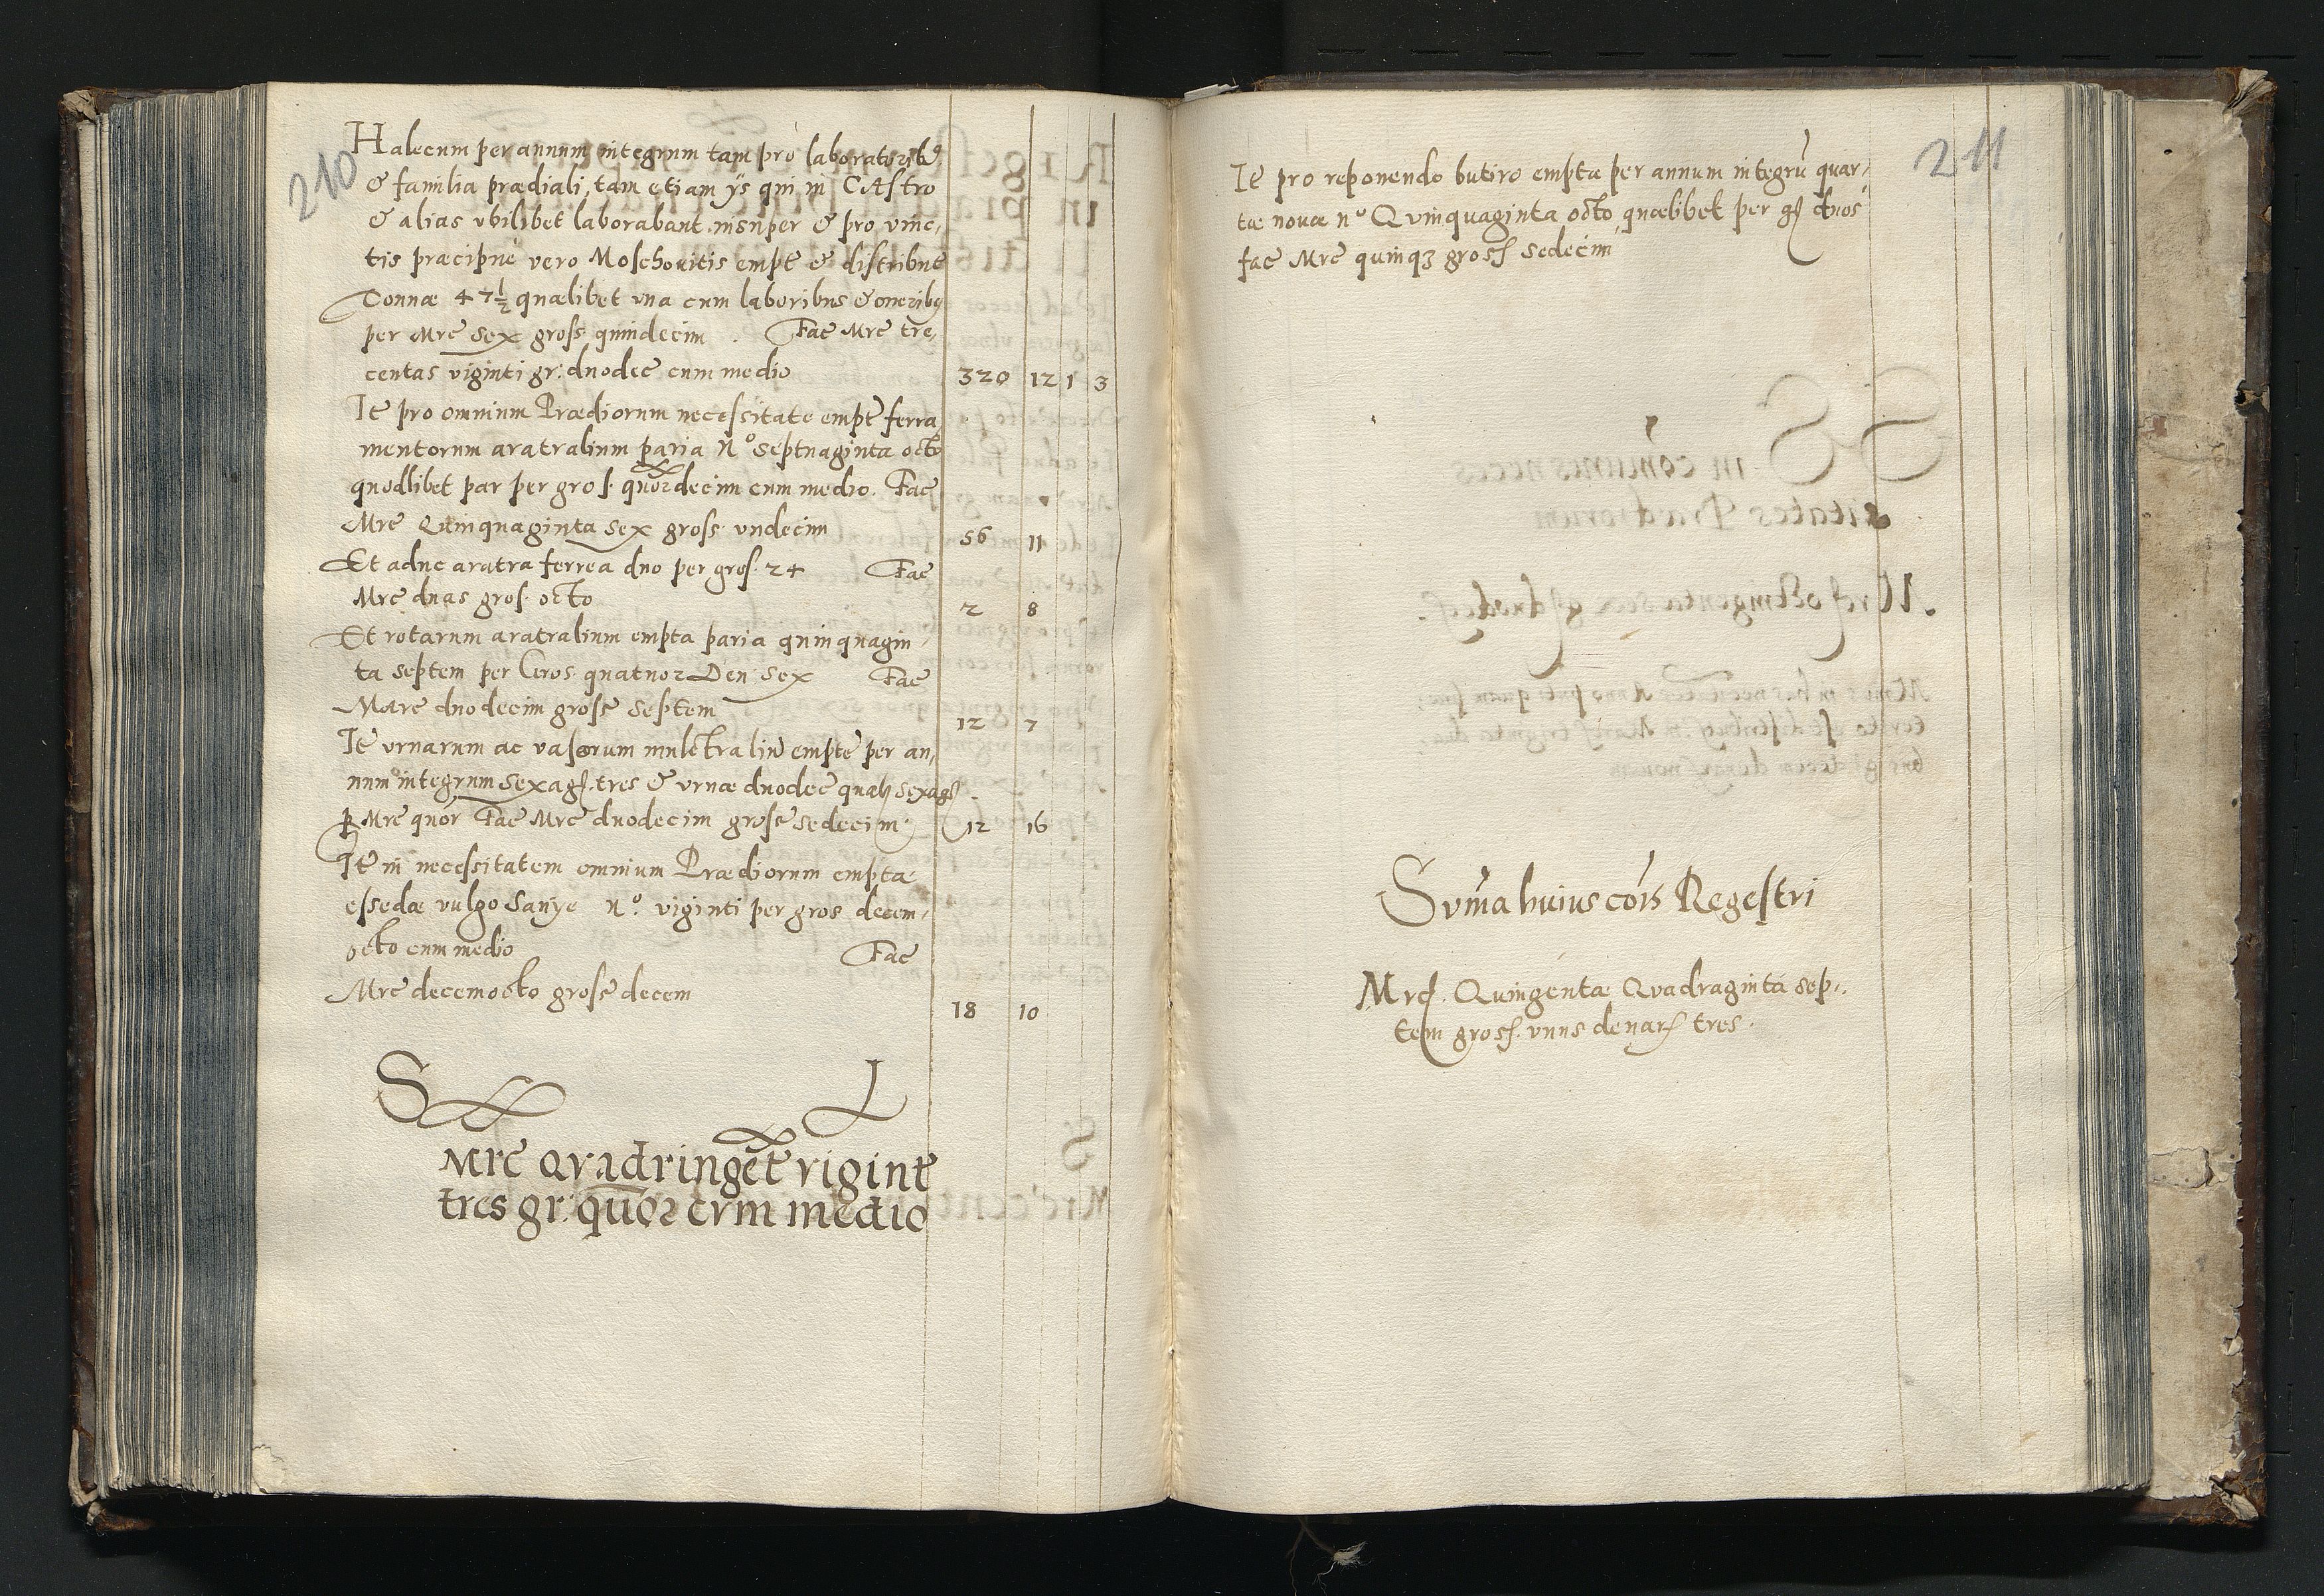 210
Halecum per annum integrum tam pro laboratorib9
& familia prædiali, tam etiam ijs qui in CAstro
& alias vbilibet laborabant, insuper & pro vinc,
tis præcipuè vero Moschouitis empt̃ & distribut̃
Tonnæ 47½ quælibet vna cum laboribus & oneribq
per Mrc̃ sex gross quindecim . Fac̃ Mrc̃ tre,
centas viginti gr: duodec̃ cum medio 320 12 1 3
It̃ pro omnium Prædiorum necessitate empt̃ ferra
mentorum aratralium paria N° septuaginta octo
quodlibet par per gros. quordecim cum medio. Fac̃
Mrc̃ Quinquaginta sex gross vndecim 56 11
Et aduc aratra ferrea duo per gros. 24 Fac̃
Mrc̃ duas gros. octo 2 8
Et rotarum aratralium empta paria quinquagin,
ta septem per Gros. quatuor Den. sex Fac̃
Marc̃ duodecim gross̃ septem 12 7
It̃ vrnarum ac vasorum mulctraliũ empte per an,
num integrum sexagſ. tres & vrnæ duodec̃ qualꝫ sexagſ
ꝑ Mrc̃ quor Fac̃ Mrc̃ duodecim gross̃ sedecim 12 16
It̃ in necessitatem omnium Prædiorum empta
essedæ vulgo Sanÿe N°. viginti per gros decem,
octo cum medio Fac̃
Mrc̃ decemocto gross̃ decem 18 10
S L
Mrc̃ Qvadringẽt vigint̃
tres gr: quor cvm medio
211
It̃ pro reponendo butiro empta per annum integrũ quar,
tæ nouæ n° Qvinquaginta octo quælibet per gſ duos
fac̃ Mrc̃ quinqꝫ grosſ sedecim
Sum̃a huius cõis Regestri
Mrcſ. Quingentæ Qvadraginta sep,
tem grosſ. vnus denarſ tres.